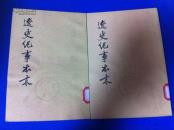 辽史纪事本末
辽史纪事本末